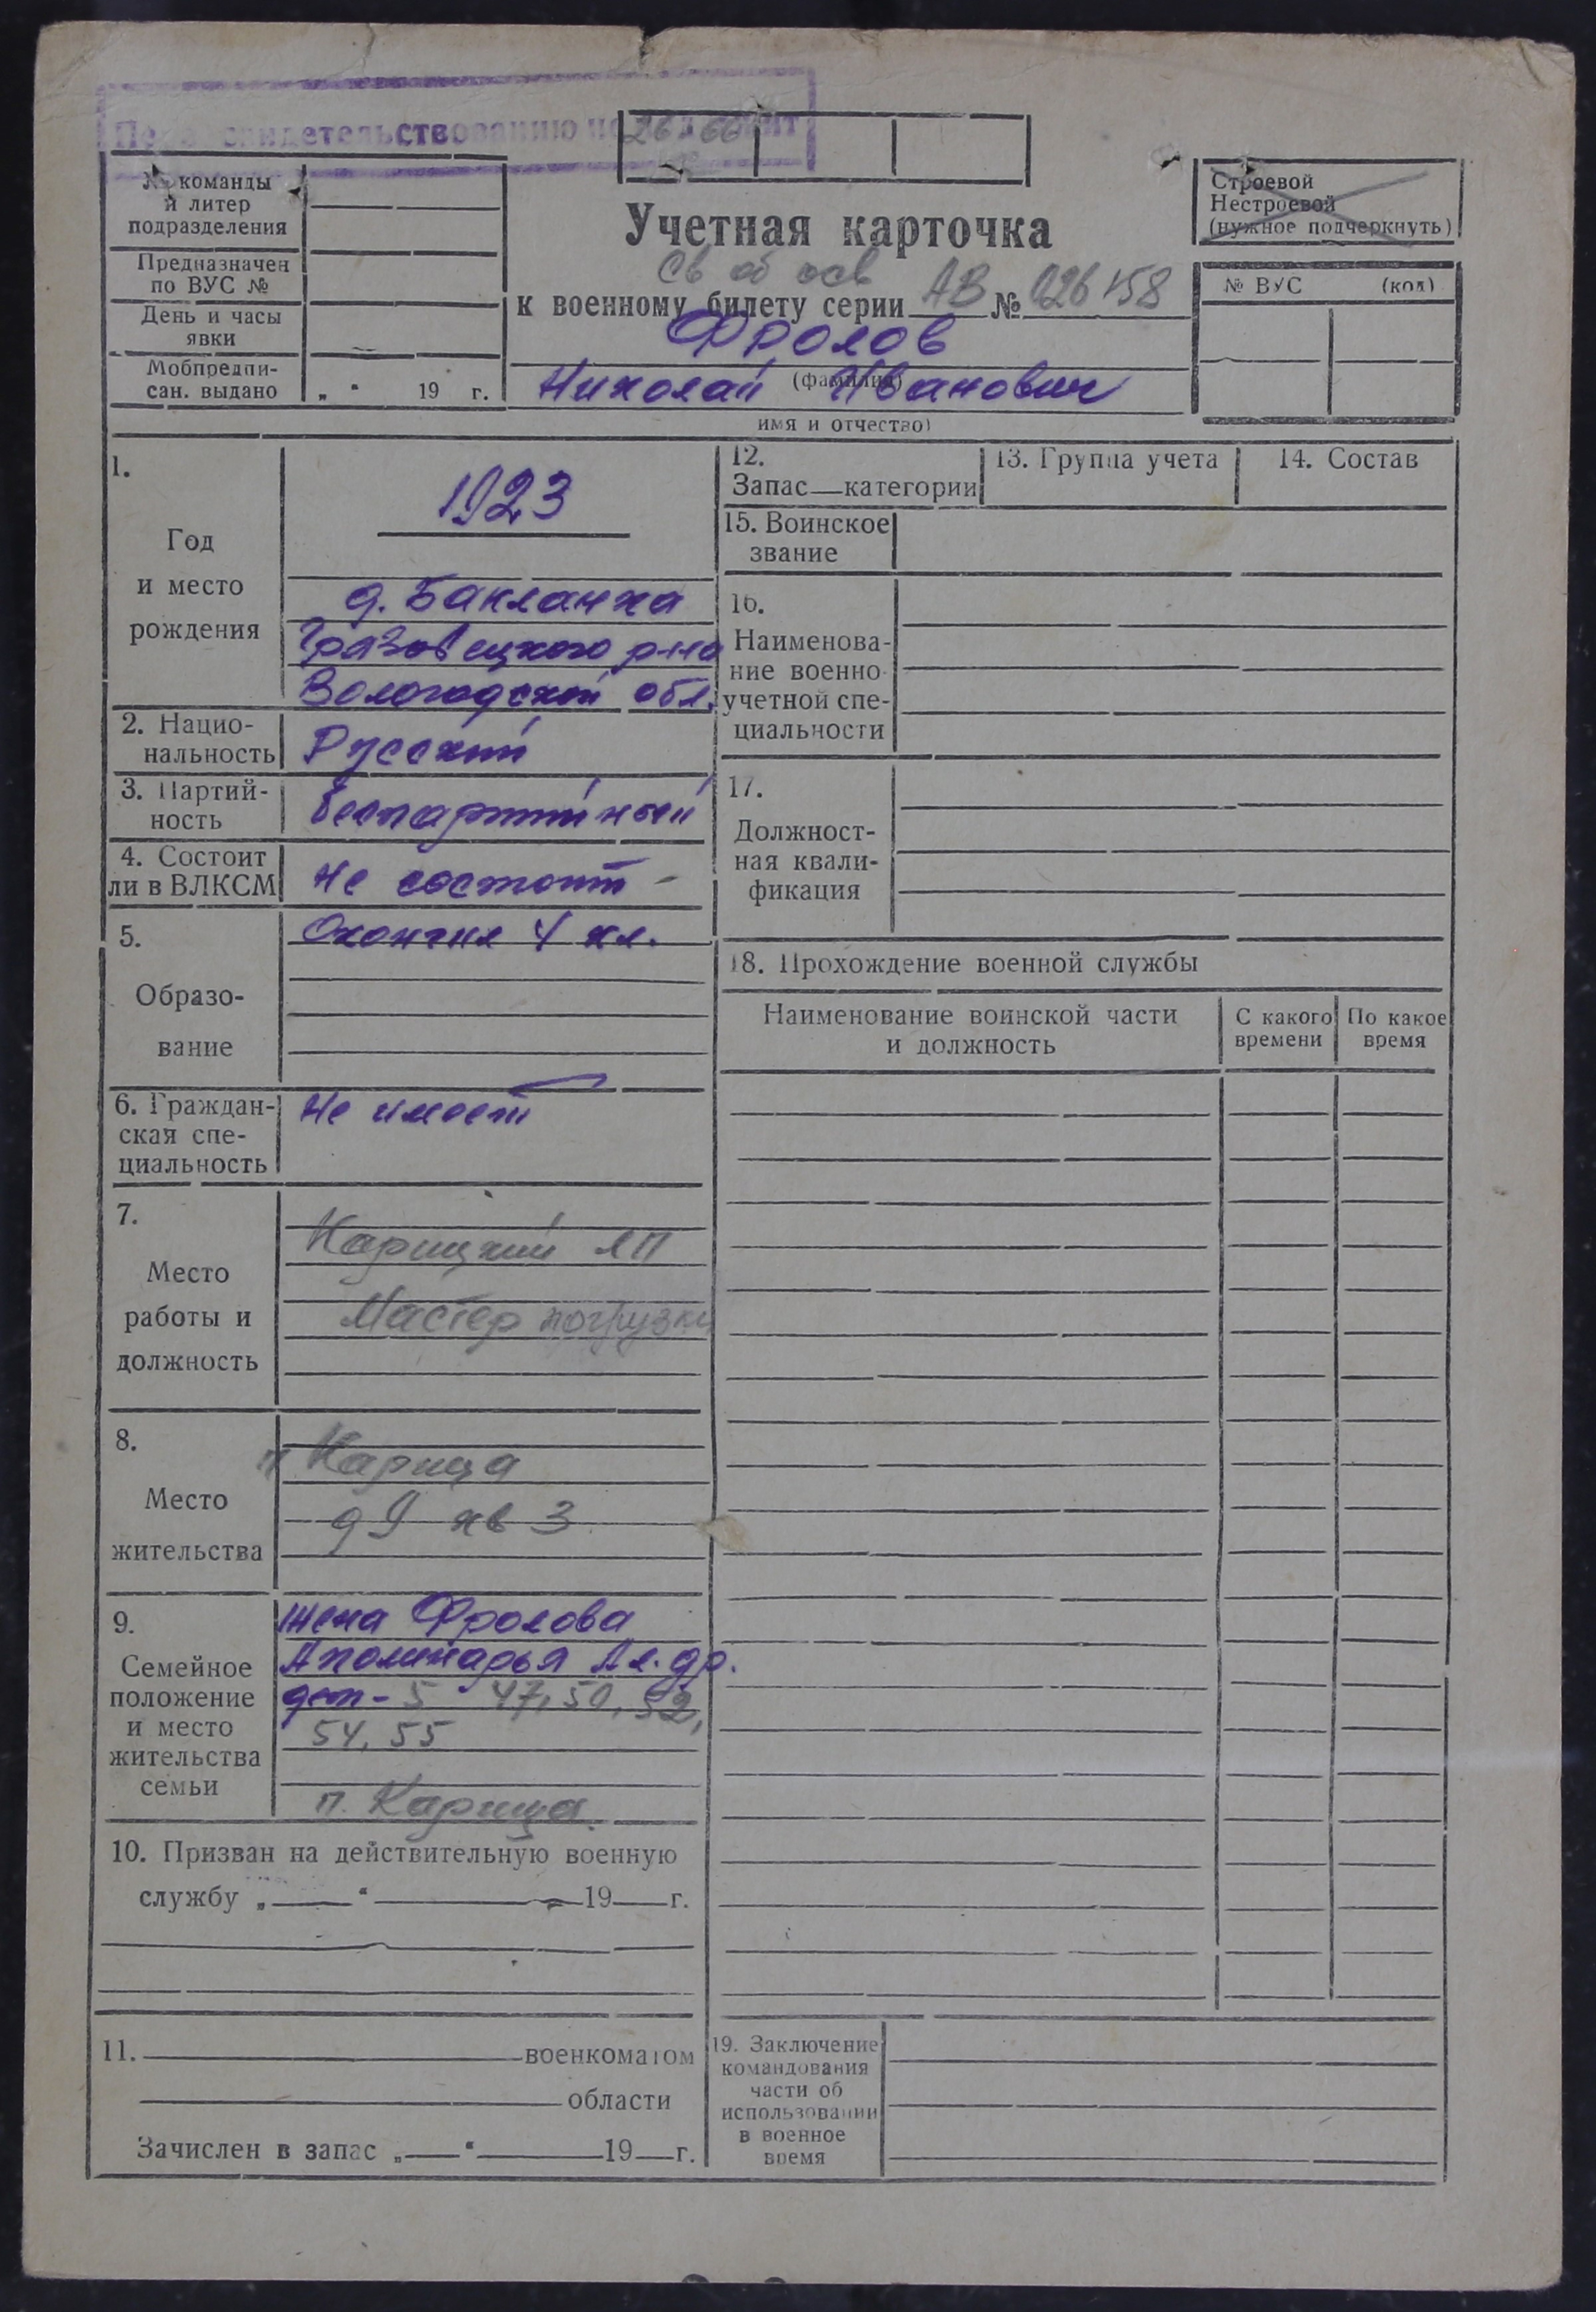 свидетельствованию
№ команды
и литер
подразделения
Предназначен
по ВУС №
День и часы
явки
Мобпредпи-
сан. выдано „ “ 19 г.
Учетная карточка
Св об осв
к военному билету серии АВ № 026158
Фролов
(фамилия)
Николай Иванович
имя и отчество)
Строевой
Нестроевой
(нужное подчеркнуть)
№ ВУС (код)
1.
Год
и место
рождения
1923
д. Бакланка
Грязовецкого р-на
Вологодской обл.
2. Нацио-
нальность
Русский
3. Партий-
ность
беспартийный
4. Состоит
ли в ВЛКСМ
Не состоит -
5.
Образо-
вание
Окончил 4 кл.
6. Граждан-
ская спе-
циальность
Не имеет
7.
Место
работы и
должность
Карицкий ЛП
Мастер погрузки
8.
Место
жительства
п Карица
д 9 кв 3
9.
Семейное
положение
и место
жительства
семьи
жена Фролова
Аполинарья Ал.др.
дет - 5 47, 50, 52,
54, 55
п. Карица.
10. Призван на действительную военную
службу „ “ 19 г.
11. военкоматом
области
Зачислен в запас „ “ 19 г.
12.
Запас—категории
13. Группа учета
14. Состав
15. Воинское
звание
16.
Наименова-
ние военно-
учетной спе-
циальности
17.
Должност-
ная квали-
фикация
18. Прохождение военной службы
Наименование воинской части
и должность
С какого
времени
По какое
время
19. Заключение
командования
части об
использовании
в военное
время